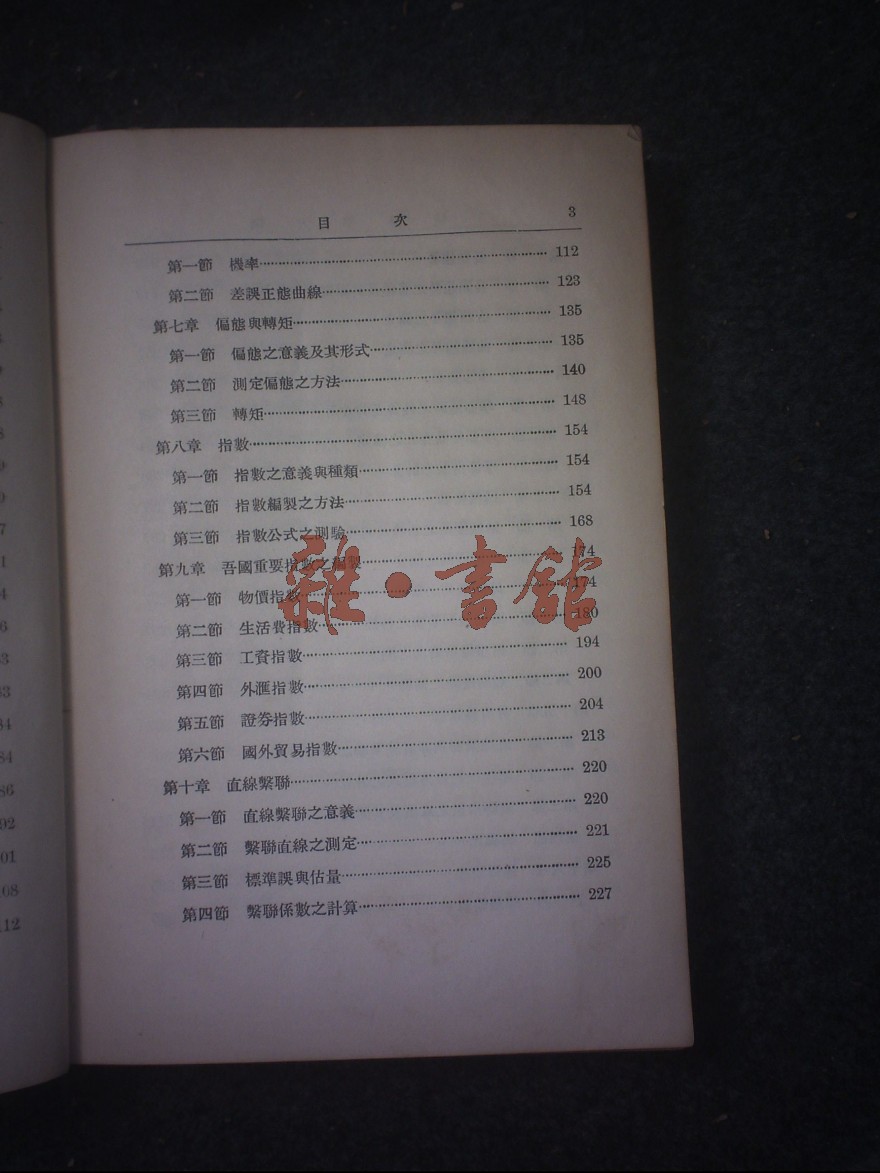 目 次 3
第一節 機率 112
第二節 差誤正態曲線 123
第七章 偏態與轉矩 135
第一節 偏態之意義及其形式 135
第二節 測定偏態之方法 140
第三節 轉矩 148
第八章 指數 154
第一節 指數之意義與種類 154
第二節 指數編製之方法 154
第三節 指數公式之測驗 168
第九章 吾國重要指數之編製 174
第一節 物價指數 174
第二節 生活費指數 180
第三節 工資指數 194
第四節 外滙指數 200
第五節 證券指數 204
第六節 國外貿易指數 213
第十章 直線繫聯 220
第一節 直線繫聯之意義 220
第二節 繫聯直線之測定 221
第三節 標準誤與估量 225
第四節 繫聯係數之計算 227
雜·書館